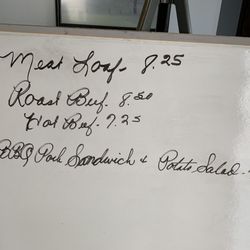 Meat Loaf - 8.25
Roast Beef - 8.50
Hot Beef - 7.25
BBQ Pork Sandwich + Potato Salad -